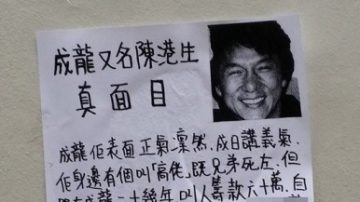 成龍又名陳港生
真面目
成龍佢表面正氣凜然,成日講義氣
佢身邊有個叫「高佬」既兄弟死左,但
二十幾年叫人籌款六十萬,自